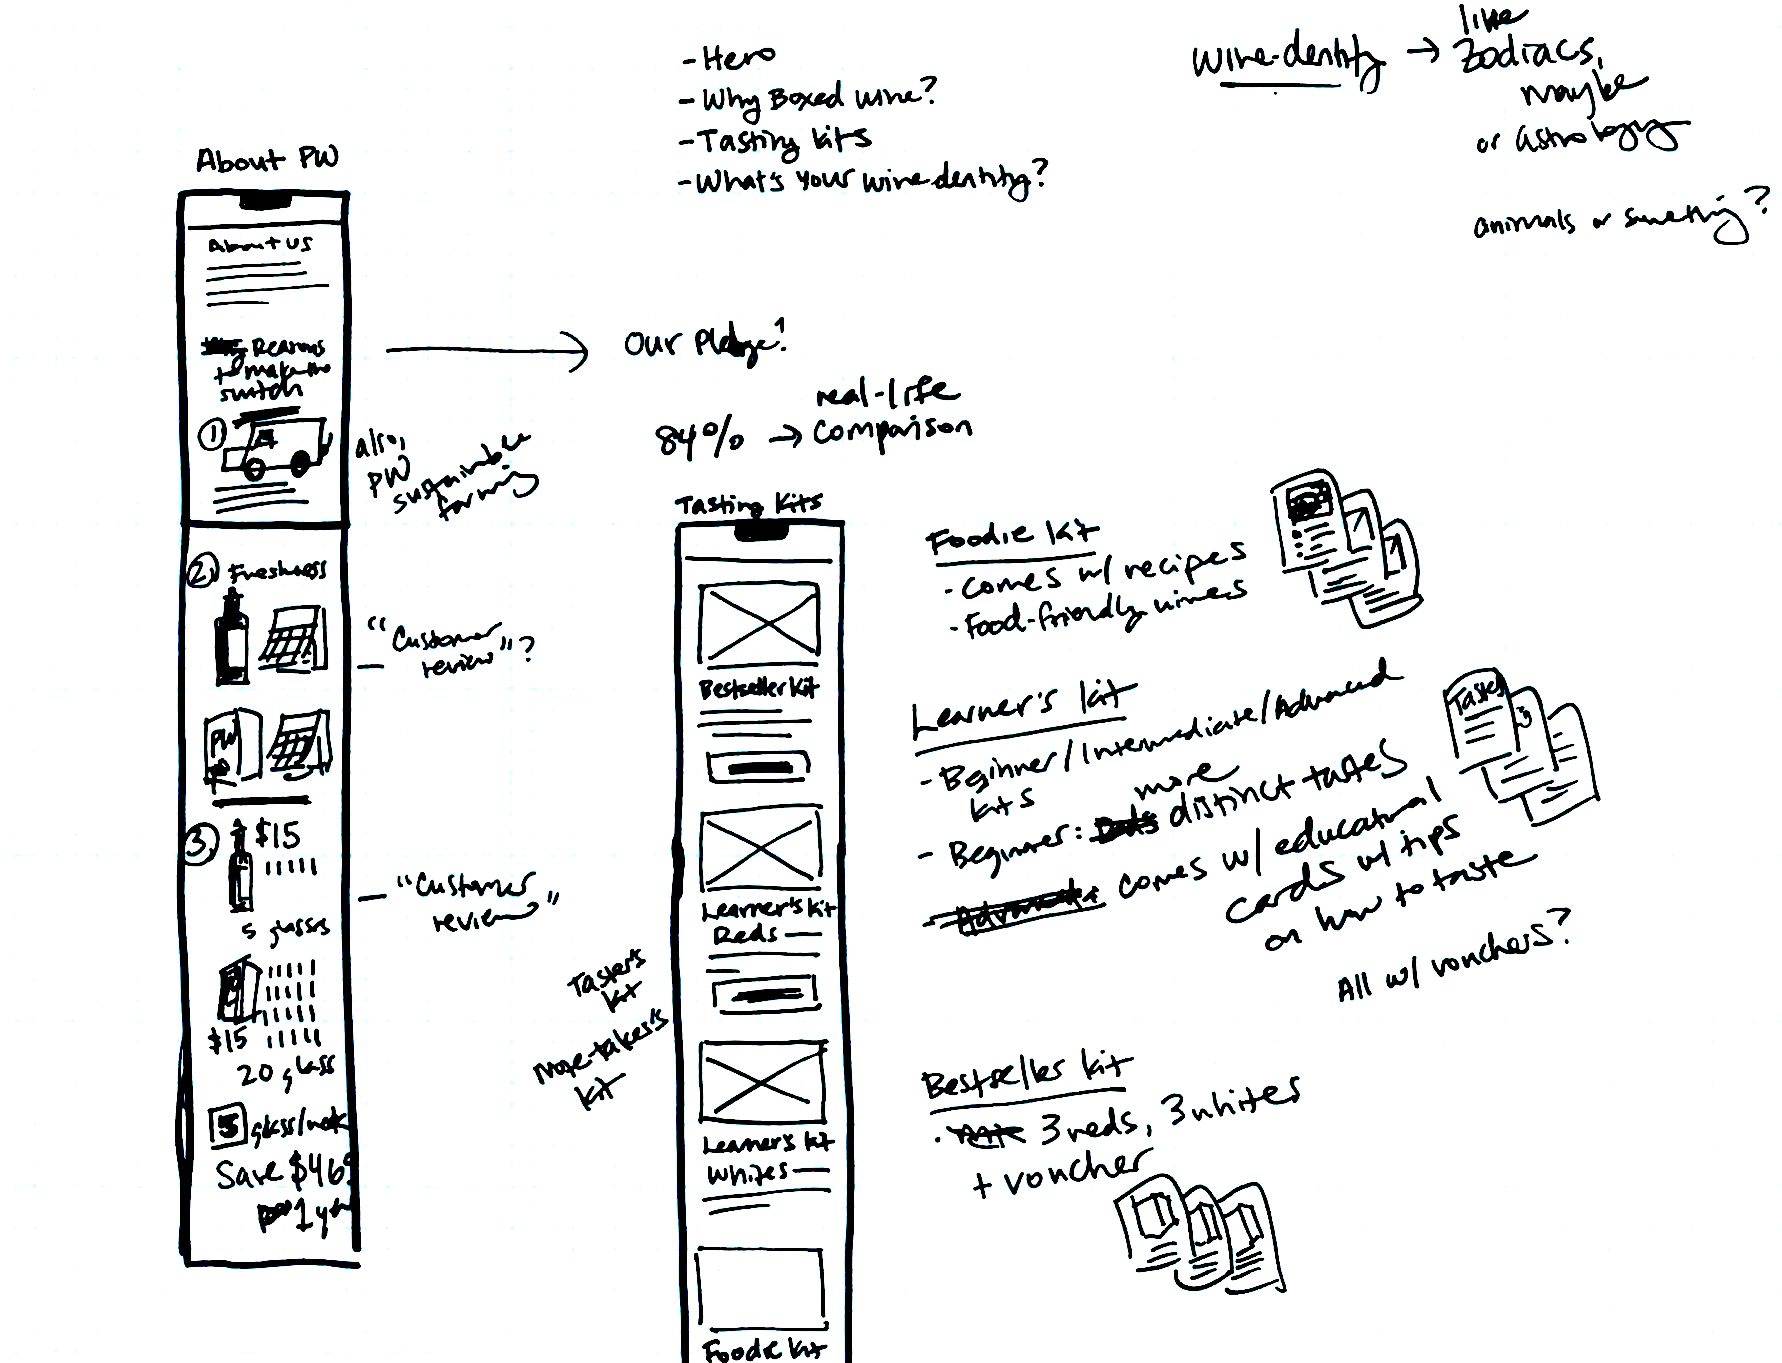 - Hero
- Why Boxed wine?
- Tasting kits
- What's your wine-dentity?
wine-dentity → like
zodiacs,
maybe
or astrology
animals or something?
About PW
About us
Reasons
to make the
switch
①
also,
PW
sustainable
farming
→ Our Pledge!
84% → real-life
comparison
② Freshness
"Customer
review"?
PW
③ $15
5 glasses
"Customer
review"
$15
20 glass
5 glass/week
Save $46
1 year
Tasting Kits
Bestseller kit
Learner's kit
Reds
Learner's kit
Whites
Foodie kit
Taster's
kit
Note-takes's
kit
Foodie kit
- Comes w/ recipes
- Food-friendly wines
Learner's kit
- Beginner/Intermediate/Advanced
kits
- Beginner: more distinct tastes
- comes w/ educational
cards w/ tips
on how to taste
Tastes
All w/ vouchers?
Bestseller kit
· 3 reds, 3 whites
+ voucher